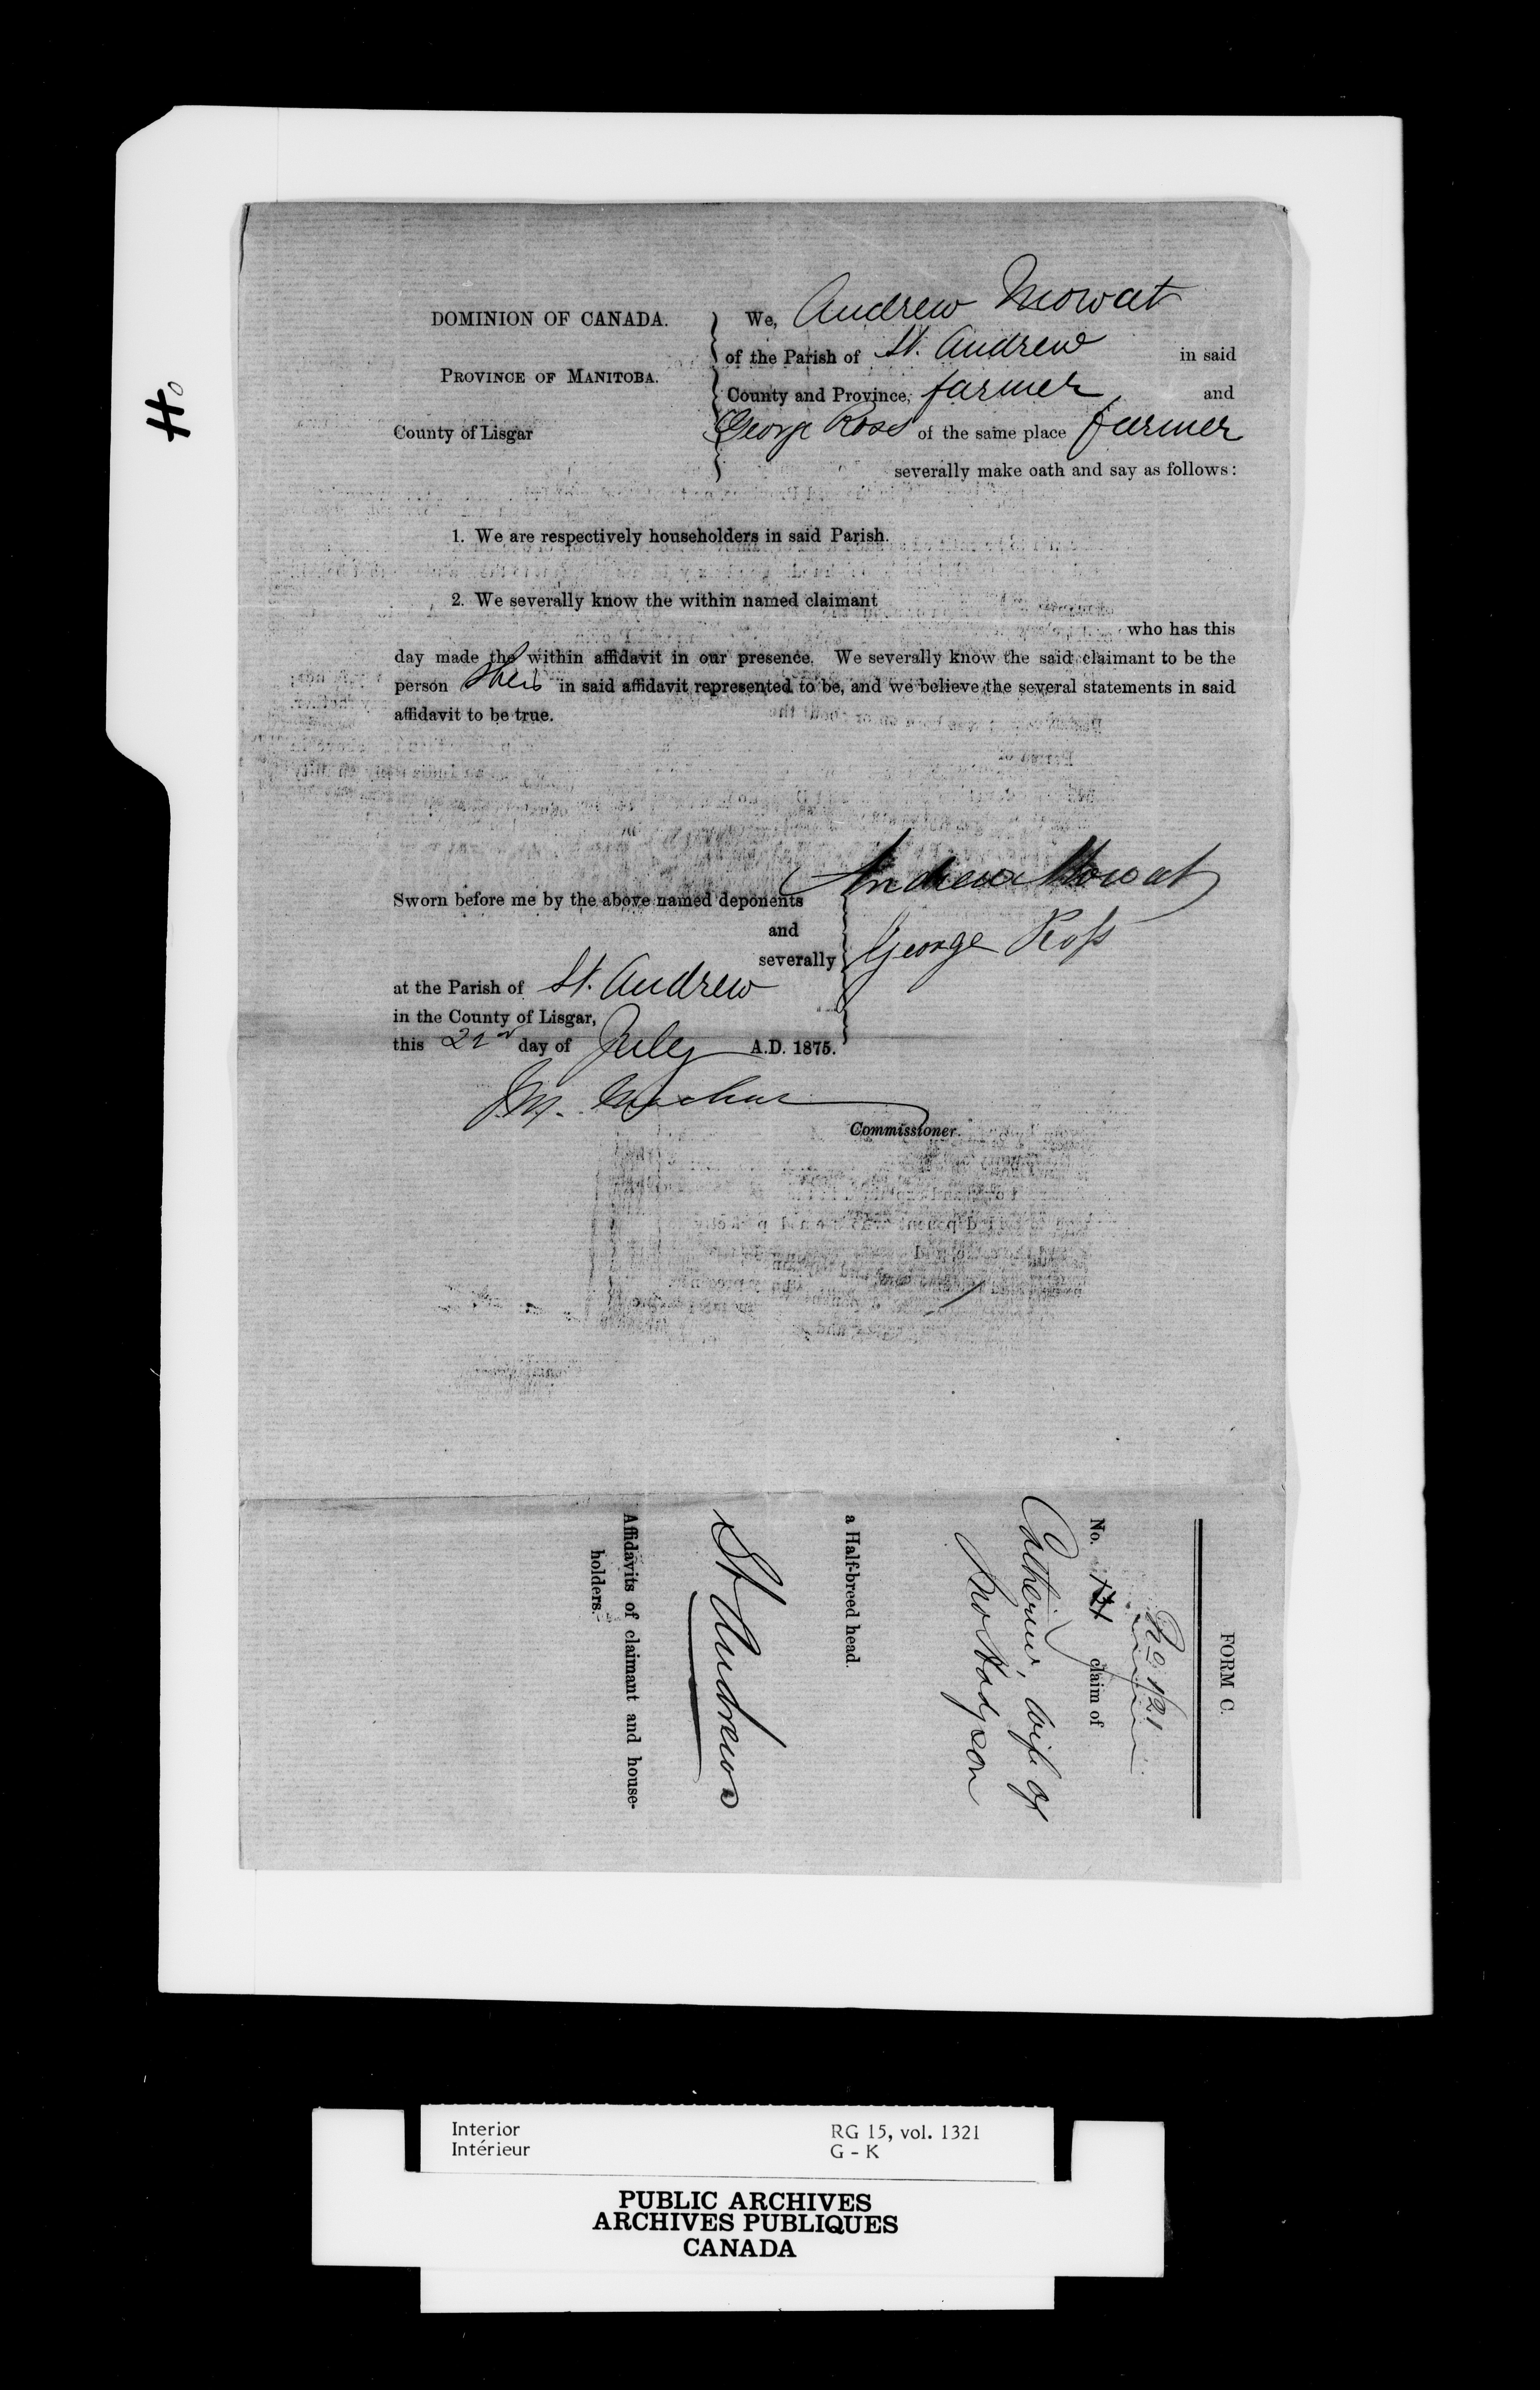 H
DOMINION OF CANADA.
PROVINCE OF MANITOBA.
County of Lisgar
We, Andrew Mowat
of the Parish of St. Andrew in said
County and Province, farmer and
George Ross of the same place farmer
severally make oath and say as follows:
1. We are respectively householders in said Parish.
2. We severally know the within named claimant
who has this
day made the within affidavit in our presence. We severally know the said claimant to be the
person She is in said affidavit represented to be, and we believe the several statements in said
affidavit to be true.
Sworn before me by the above named deponents
and
severally
at the Parish of St. Andrew
in the County of Lisgar,
this day of July A.D. 1875.
Andrew Mowat
George Ross
Commissioner.
FORM C.
No 121
No. claim of
Catherine, wife of
Jno Hodgson
a Half-breed head.
St Andrews
Affidavits of claimant and house-
holders.
Interior
Intérieur
RG 15, vol. 1321
G - K
PUBLIC ARCHIVES
ARCHIVES PUBLIQUES
CANADA